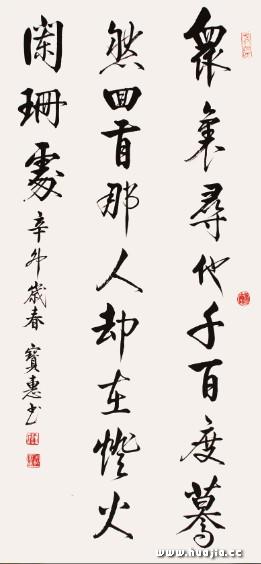 眾裏尋他千百度驀
然回首那人却在燈火
闌珊處
辛卯歲春 寶惠書
www.huajia.cc